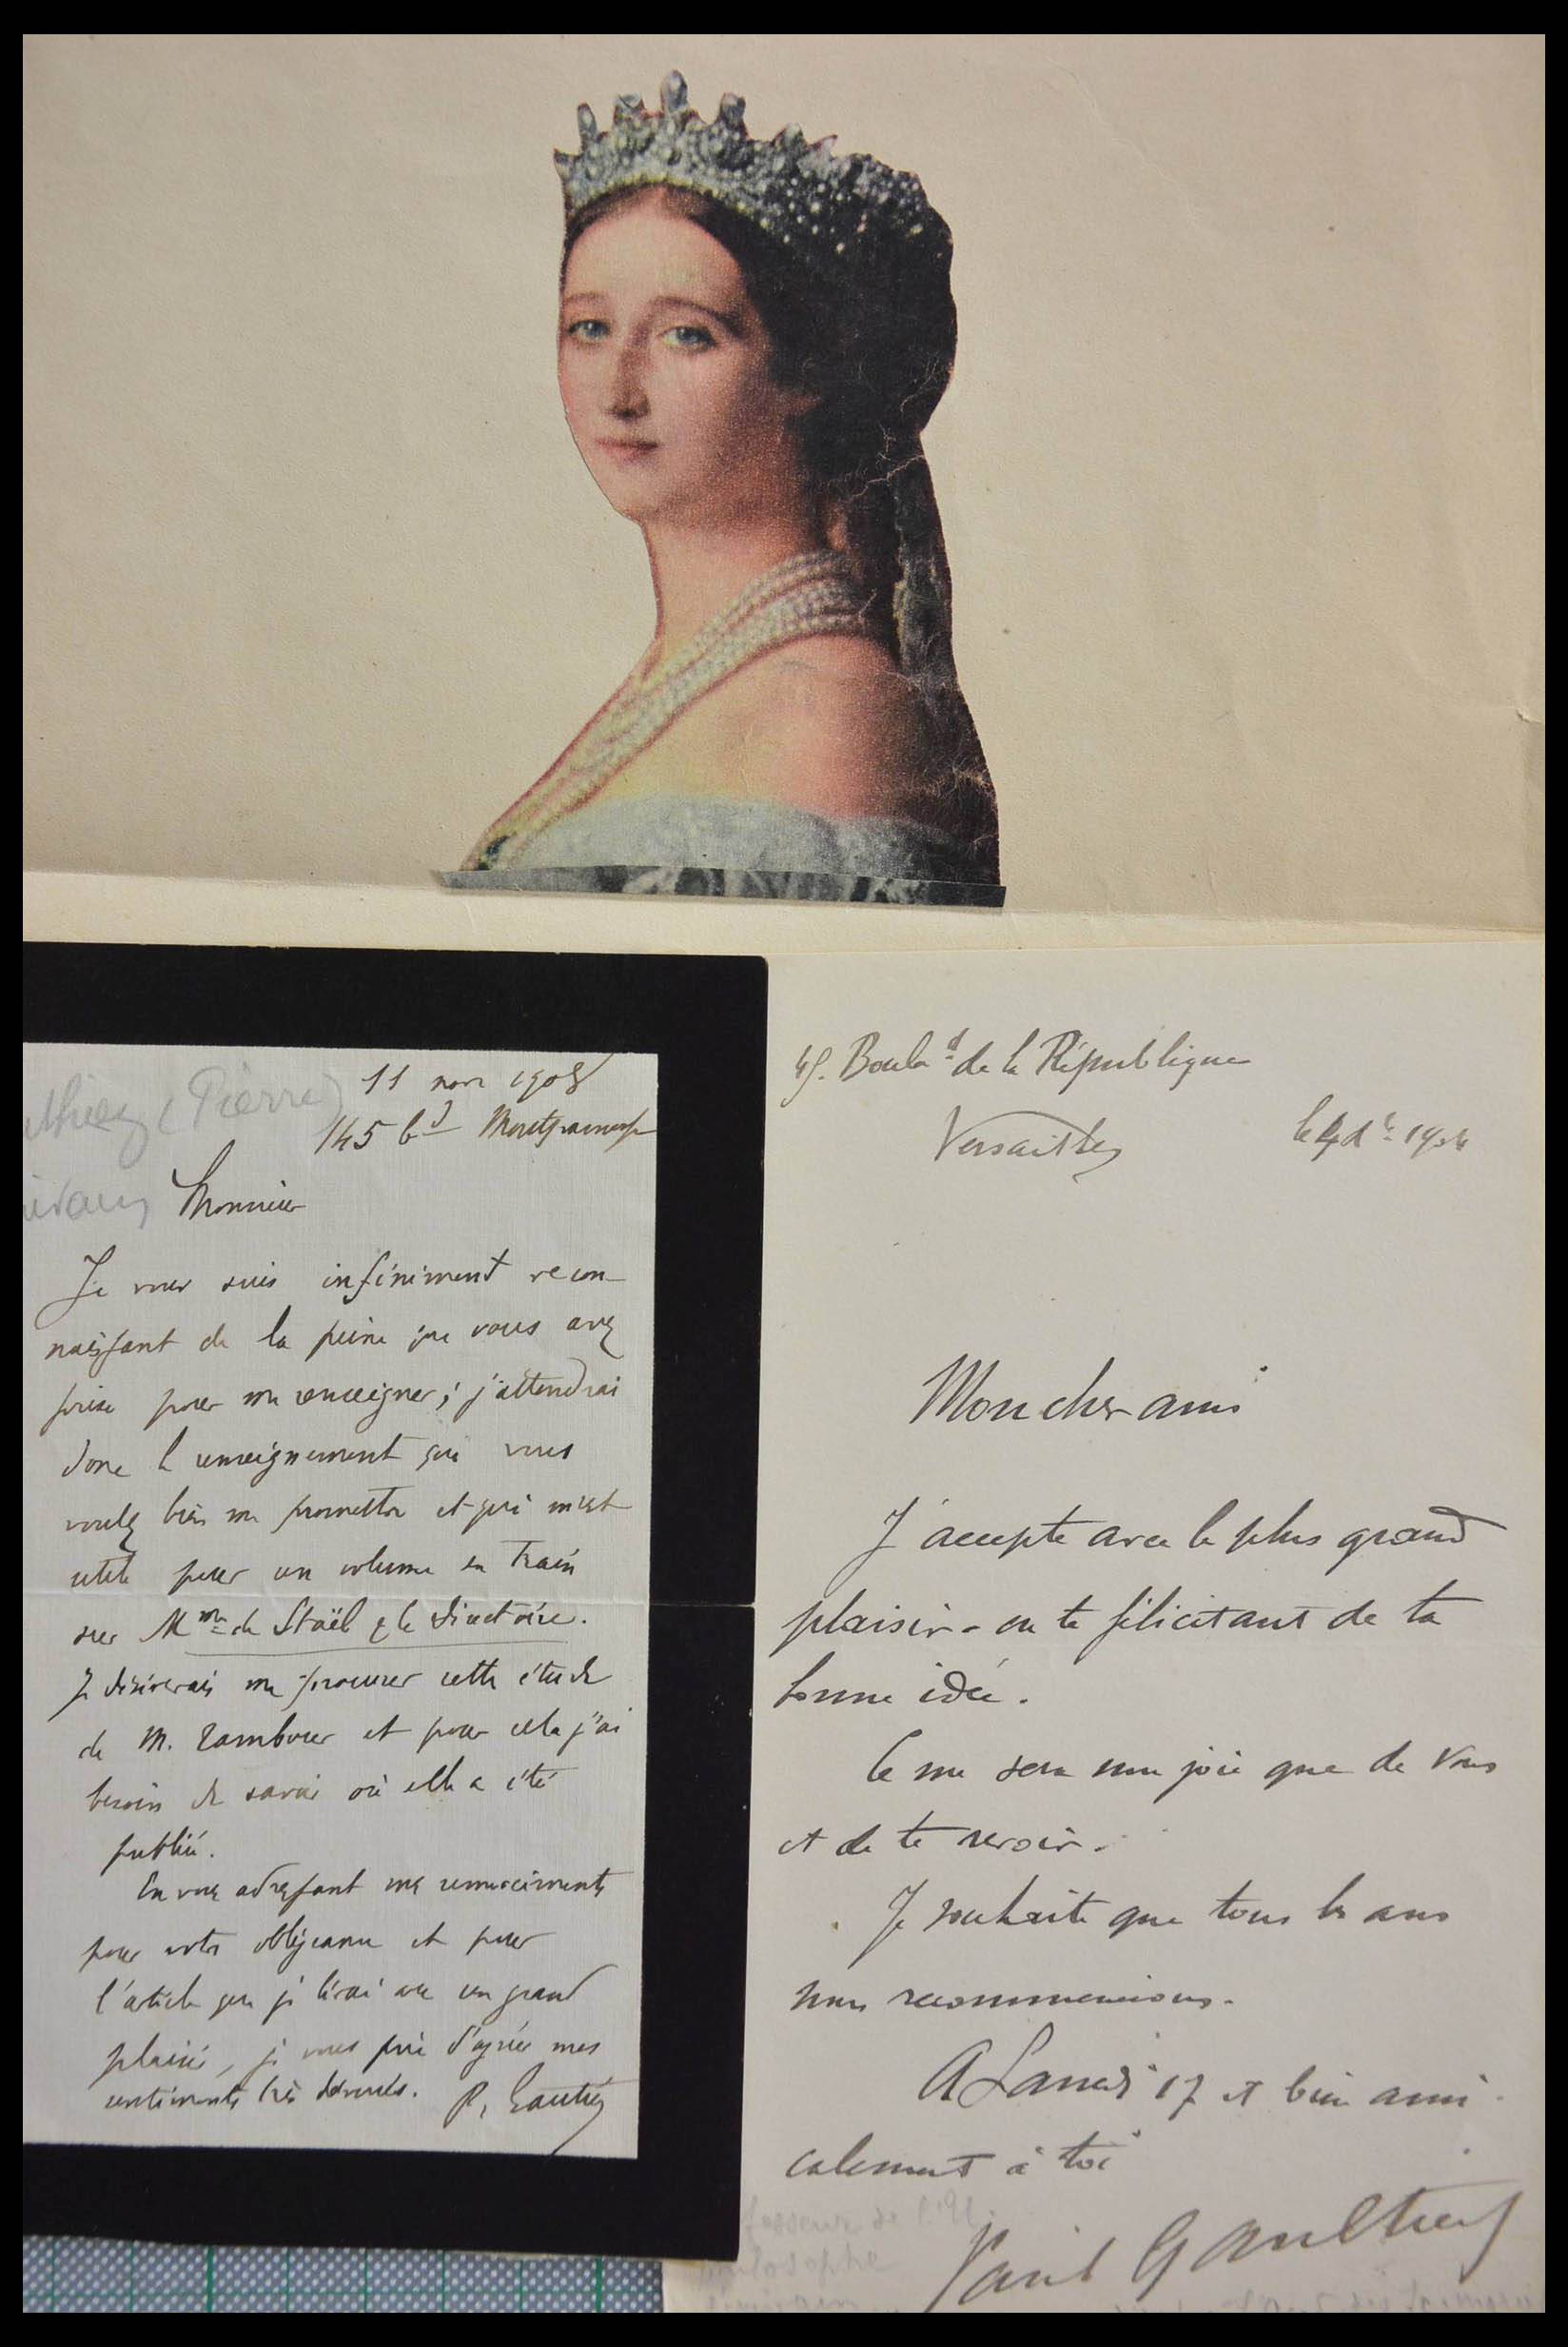 11 nov 1908
145 bd Montparnasse
(Pierre)
Monsieur
Je vous suis infiniment recon-
naissant de la peine que vous avez
prise pour me renseigner; j'attendrai
donc le renseignement que vous
voulez bien me promettre et qui m'est
utile pour un volume en train
sur Mme de Staël & le Directoire.
Je désirerais me procurer cette étude
de M. Tambour et pour cela j'ai
besoin de savoir où elle a été
publié.
En vous adressant mes remerciments
pour votre obligeance et pour
l'article que je lirai avec un grand
plaisir, je vous prie d'agréer mes
sentiments très dévoués. P. Gautier
45. Bould de la République
Versailles
le 4 dc 1904
Mon cher ami
J'accepte avec le plus grand
plaisir - en te félicitant de ta
bonne idée.
Ce me sera une joie que de vous
et de te revoir.
Je souhaite que tous les ans
nous recommencions.
A Lundi 17 et bien ami-
calement à toi
Paul Gaultier